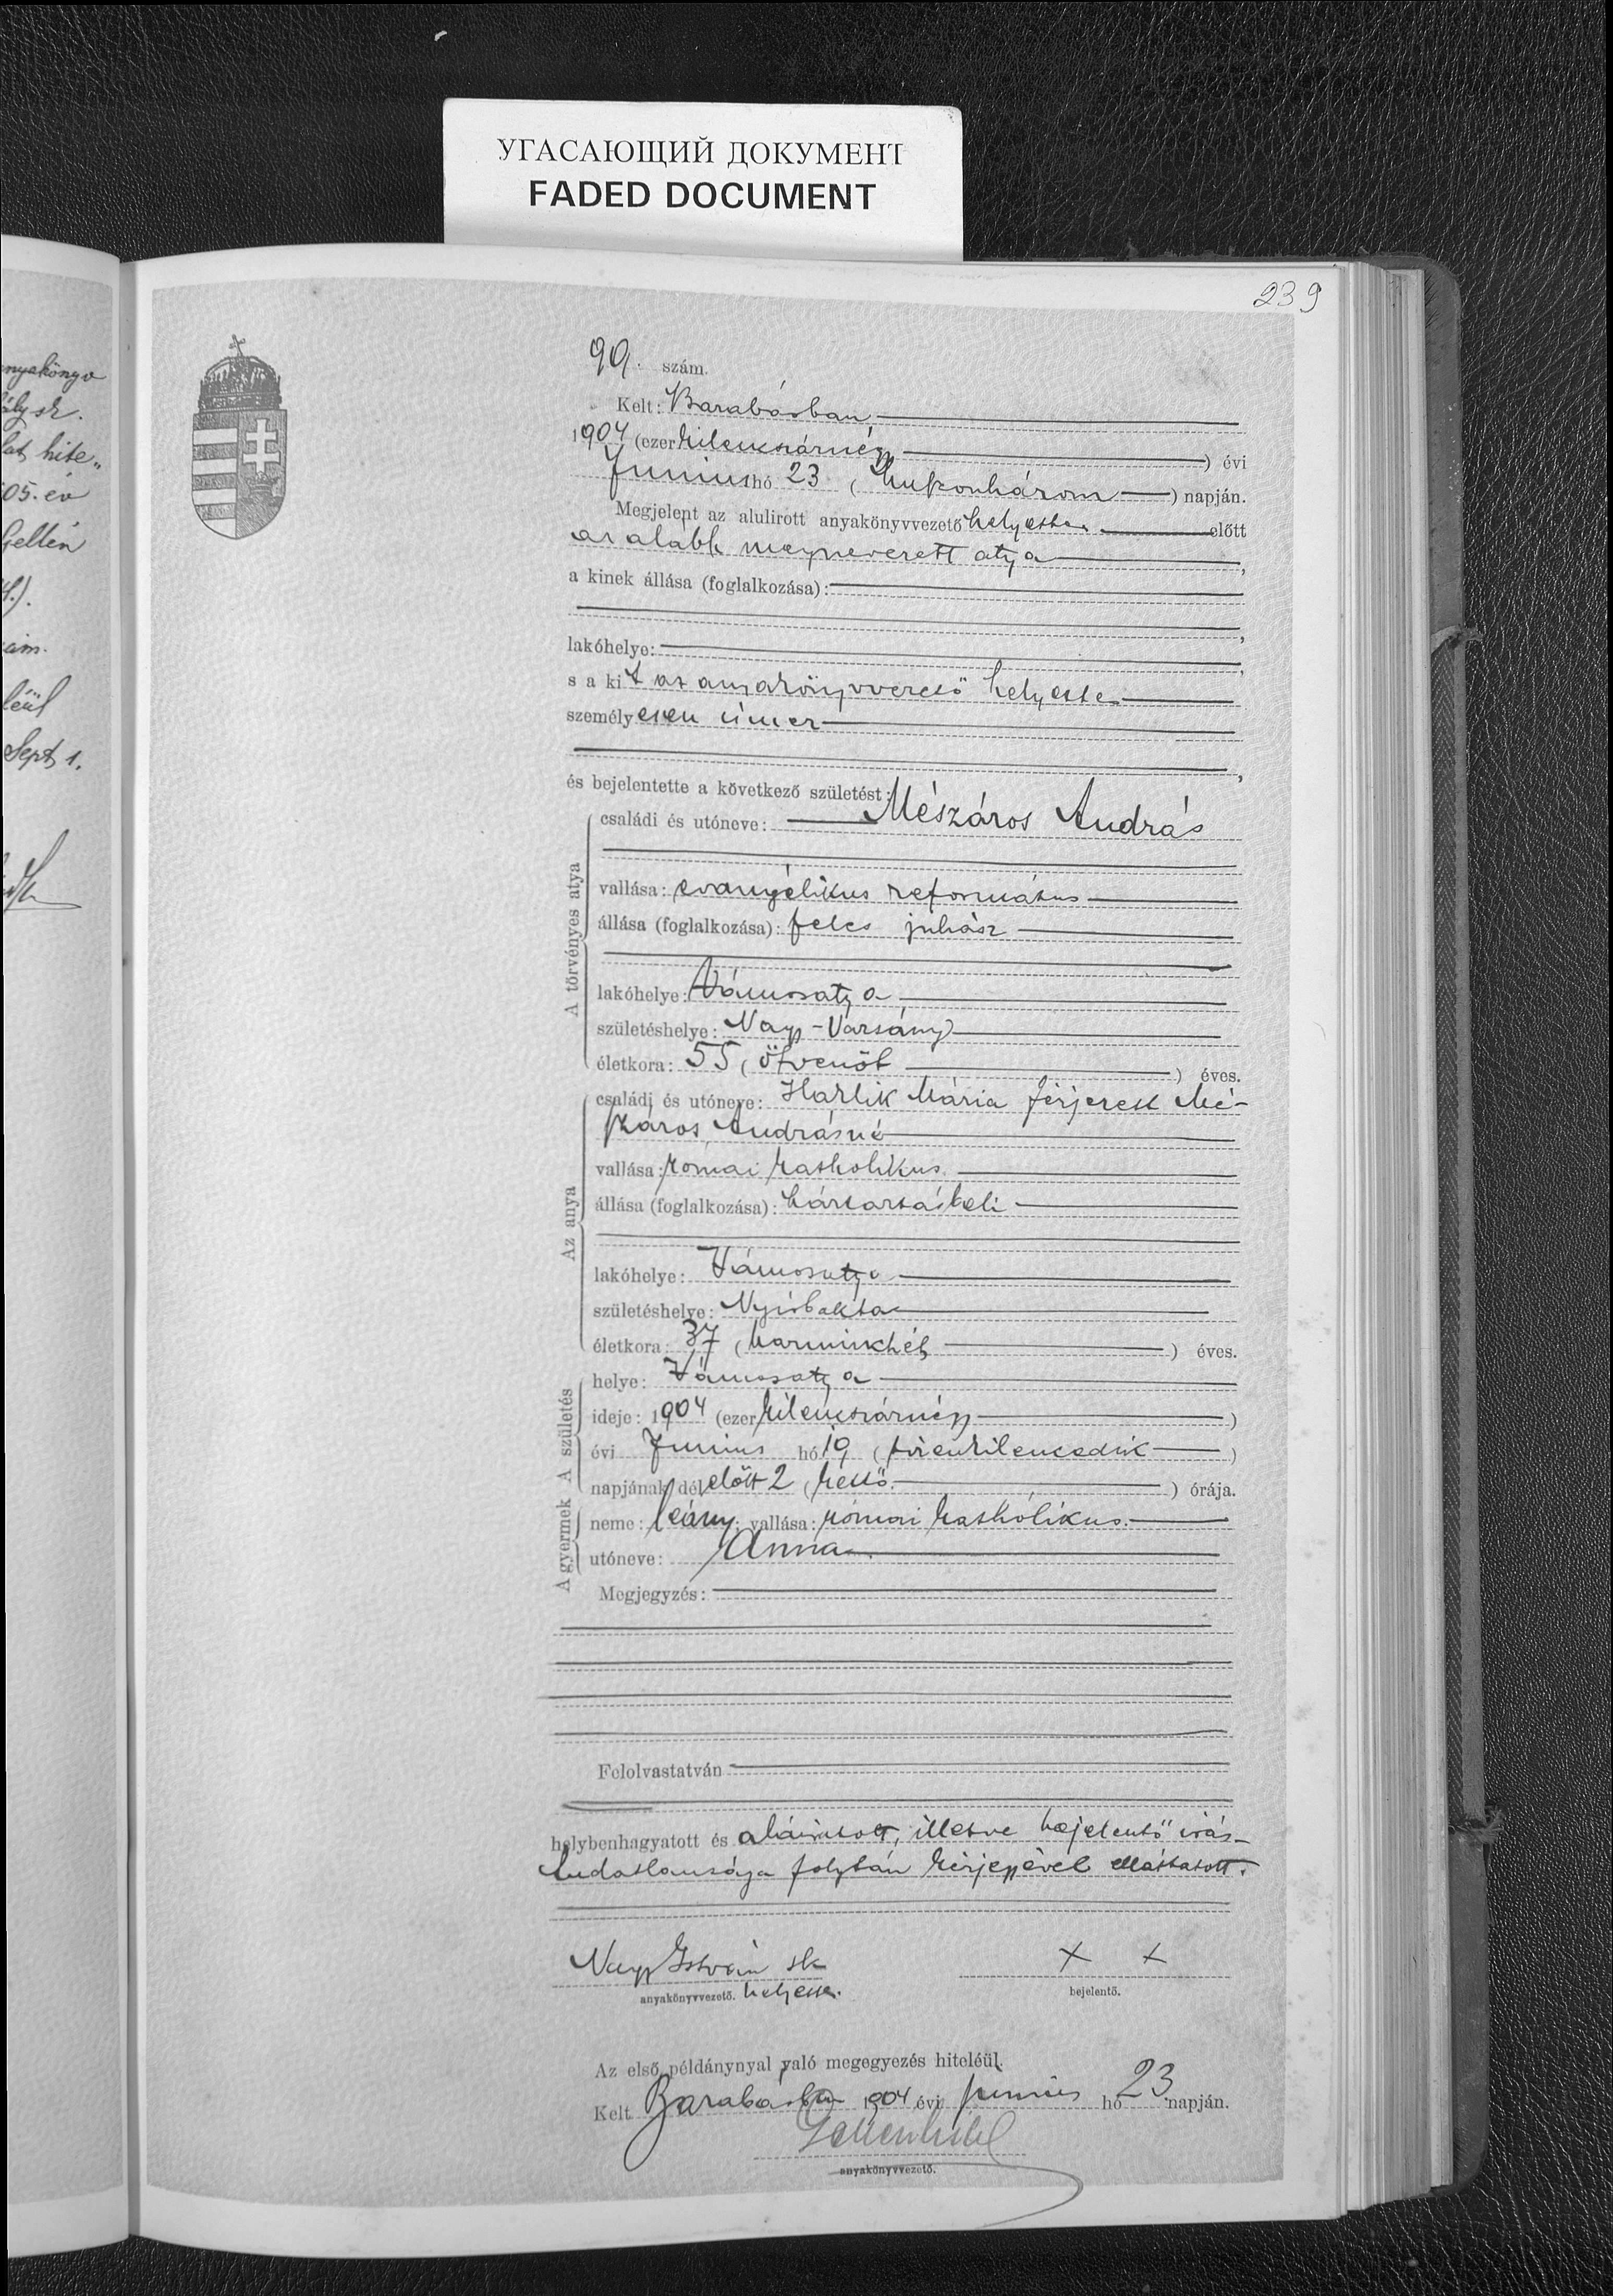 УГАСАЮЩИЙ ДОКУМЕНТ
FADED DOCUMENT
239
anyakönyv
hite„
05. év
Gellén
Sept 1.
99. szám.
Kelt: Barabásban
1904 (ezer kilenczszáznégy ) évi
Junius hó 23 ( huszonhárom ) napján.
Megjelent az alulirott anyakönyvvezető helyettes előtt
az alább megnevezett atya ,
a kinek állása (foglalkozása):
,
lakóhelye: ,
s a kit az anyakönyvvezető helyettes
személyesen ismer
,
és bejelentette a következő születést:
A törvényes atya
családi és utóneve: Mészáros András
vallása: evangélikus református
állása (foglalkozása): feles juhász
lakóhelye: Vámosatya
születéshelye: Nagy-Varsány
életkora: 55 (ötvenöt ) éves.
Az anya
családi és utóneve: Harlik Mária férjezett Mé-
száros Andrásné
vallása: római katholikus
állása (foglalkozása): háztartásbeli
lakóhelye: Vámosatya
születéshelye: Nyirbakta
életkora: 37 (harminchét ) éves.
A születés
helye: Vámosatya
ideje: 1904 (ezer kilenczszáznégy )
évi Junius hó 19 ( tizenkilencedik )
napjának dél előtt 2 (kettő. ) órája.
A gyermek
neme: leány; vallása: római katholikus.
utóneve: Anna.
Megjegyzés:
Felolvastatván
helybenhagyatott és aláiratott, illetve bejelentő irás-
tudatlansága folytán kézjegyével elláttatott.
Nagy István sk + +
anyakönyvvezető. helyettes. bejelentő.
Az első példánynyal való megegyezés hiteléül.
Kelt Barabásban 1904 évi junius hó 23 napján.
anyakönyvvezető.